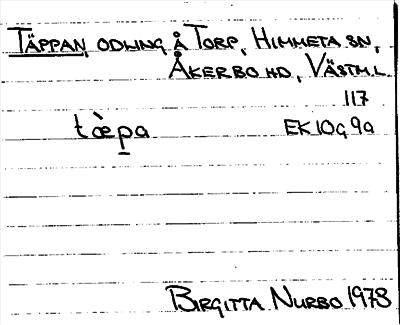 TÄPPAN, ODLING Å TORP, HIMMETA SN,
ÅKERBO HD, VÄSTM.L.
117
tæ̀p̲a EK10G9a
BIRGITTA NURBO 1978